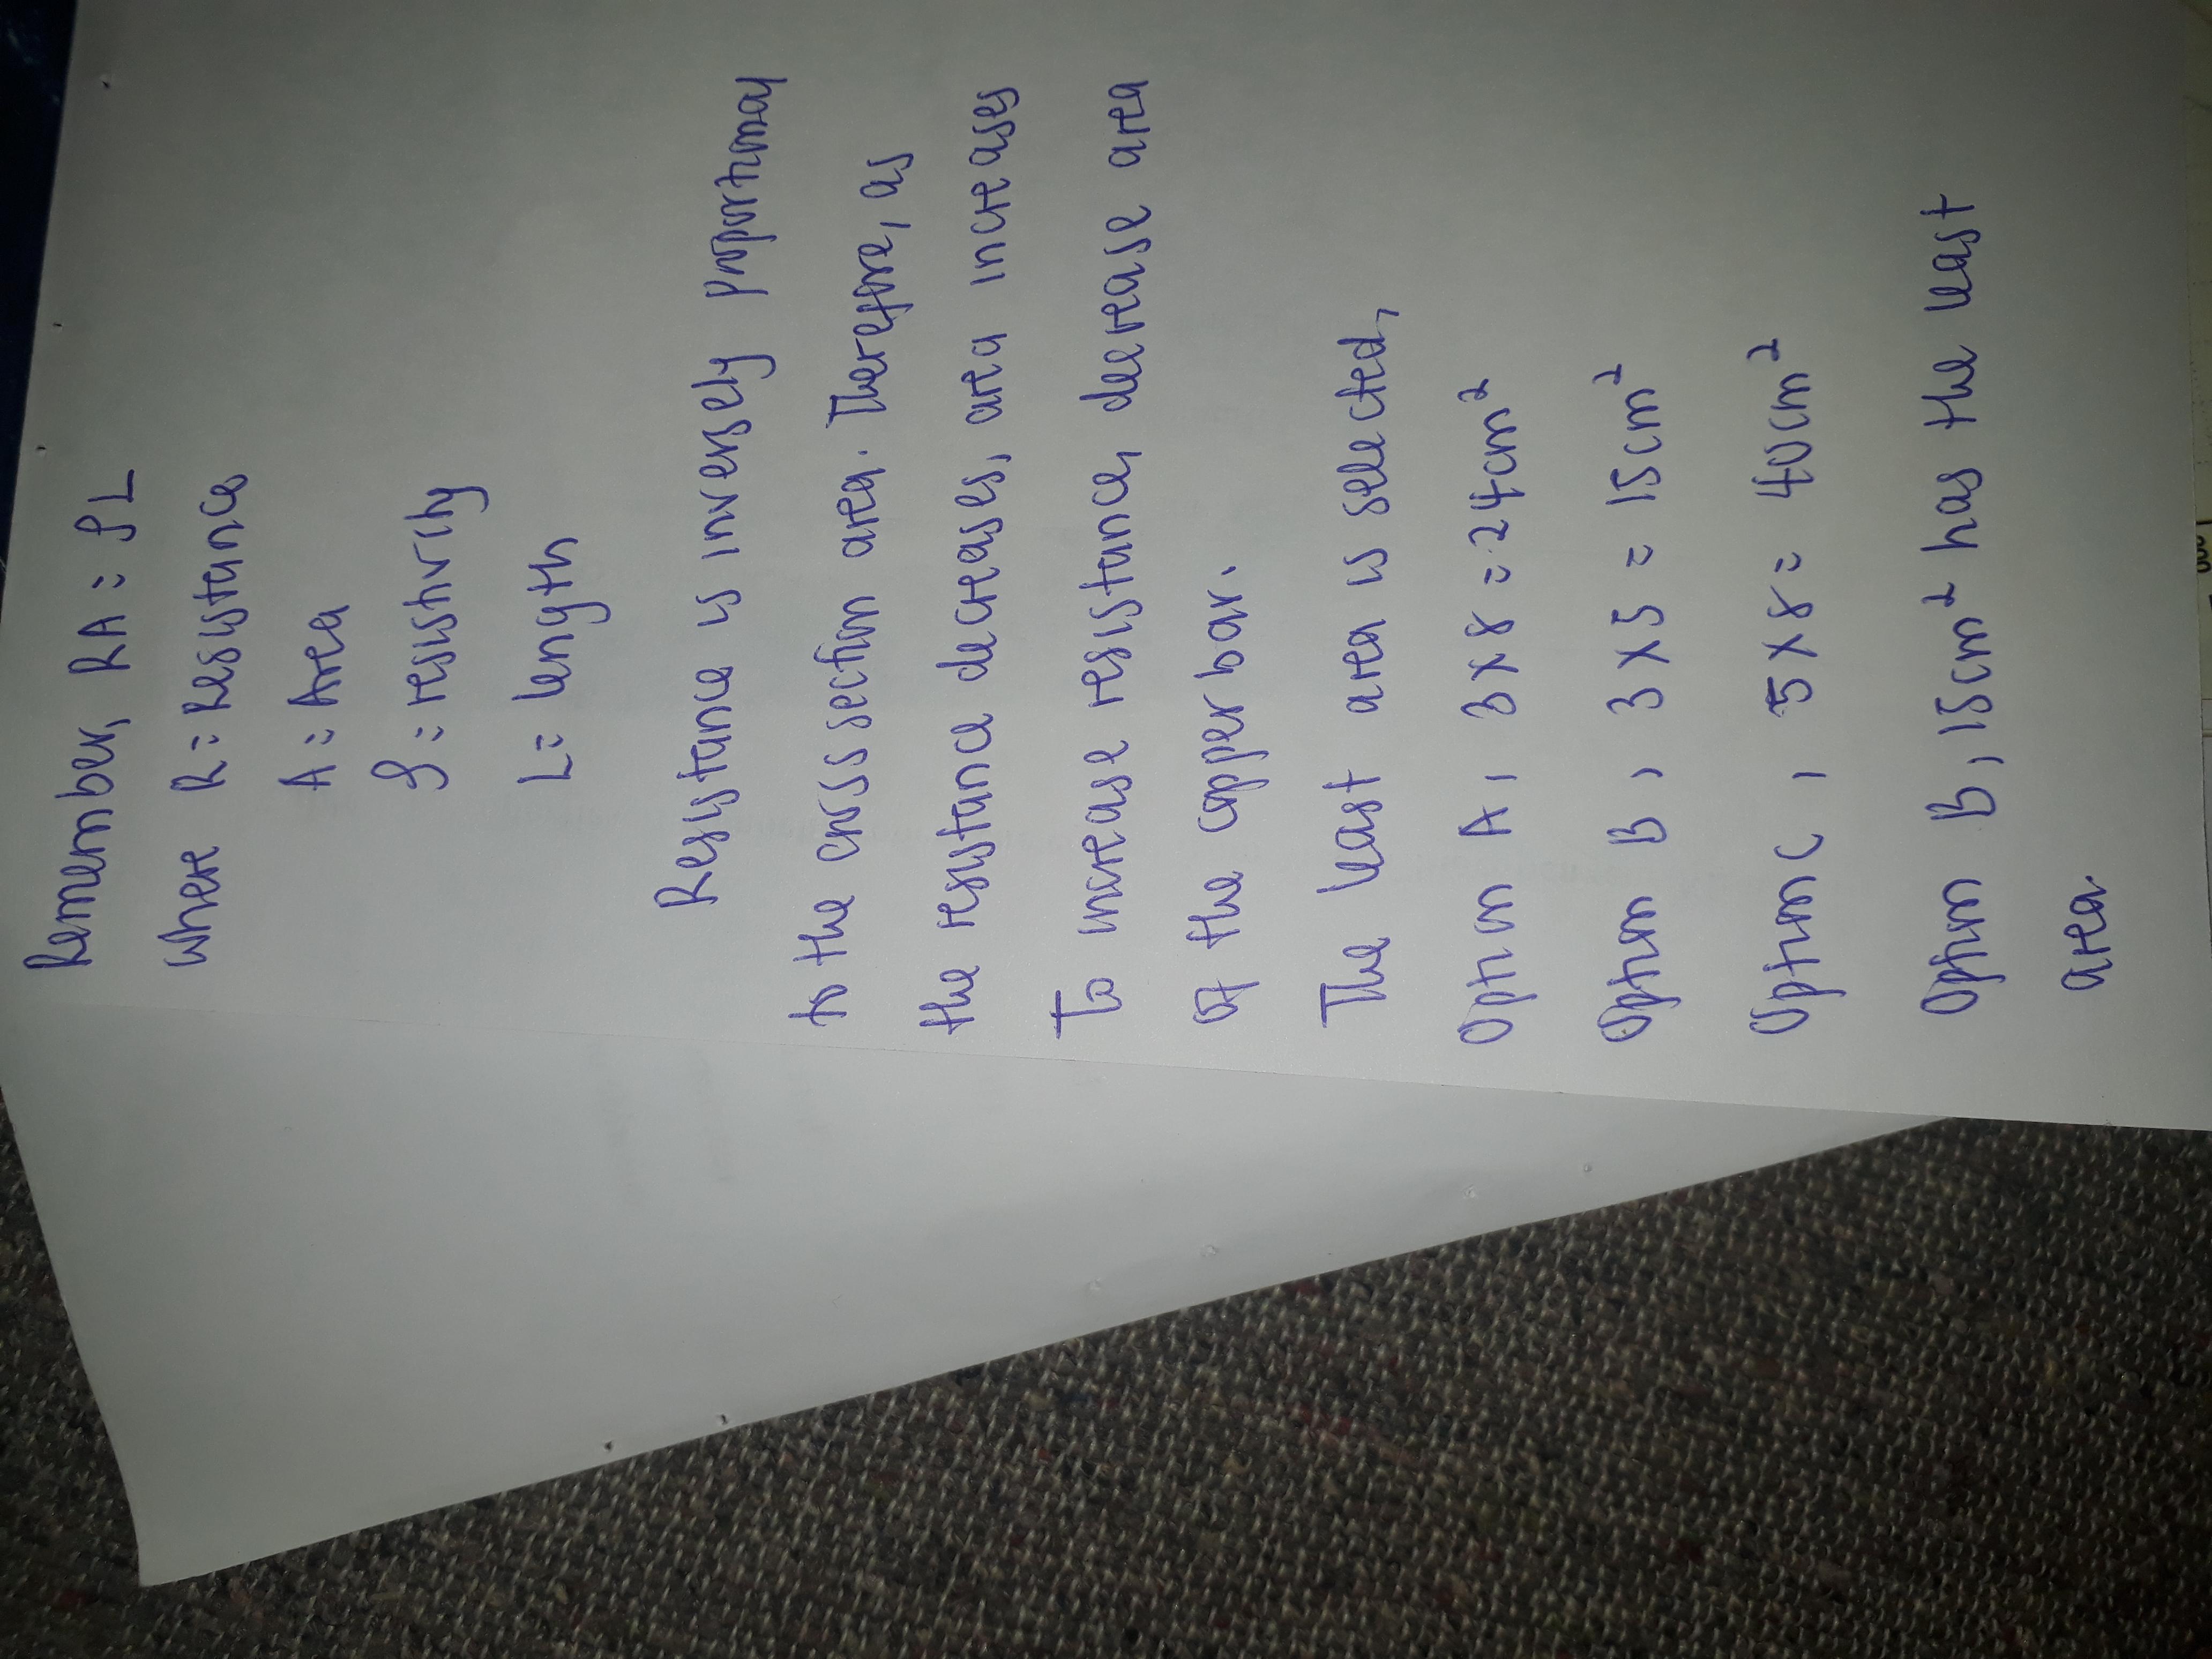 Remember, RA = ρL
where R = Resistance
A = Area
ρ = resistivity
L = length
Resistance is inversely proportional
to the cross section area. Therefore, as
the resistance decreases, area increases
To increase resistance, decrease area
of the copper bar.
The least area is selected,
Option A, 3 x 8 = 24cm²
Option B, 3 x 5 = 15cm²
Option C, 5 x 8 = 40cm²
Option B, 15cm² has the least
area.